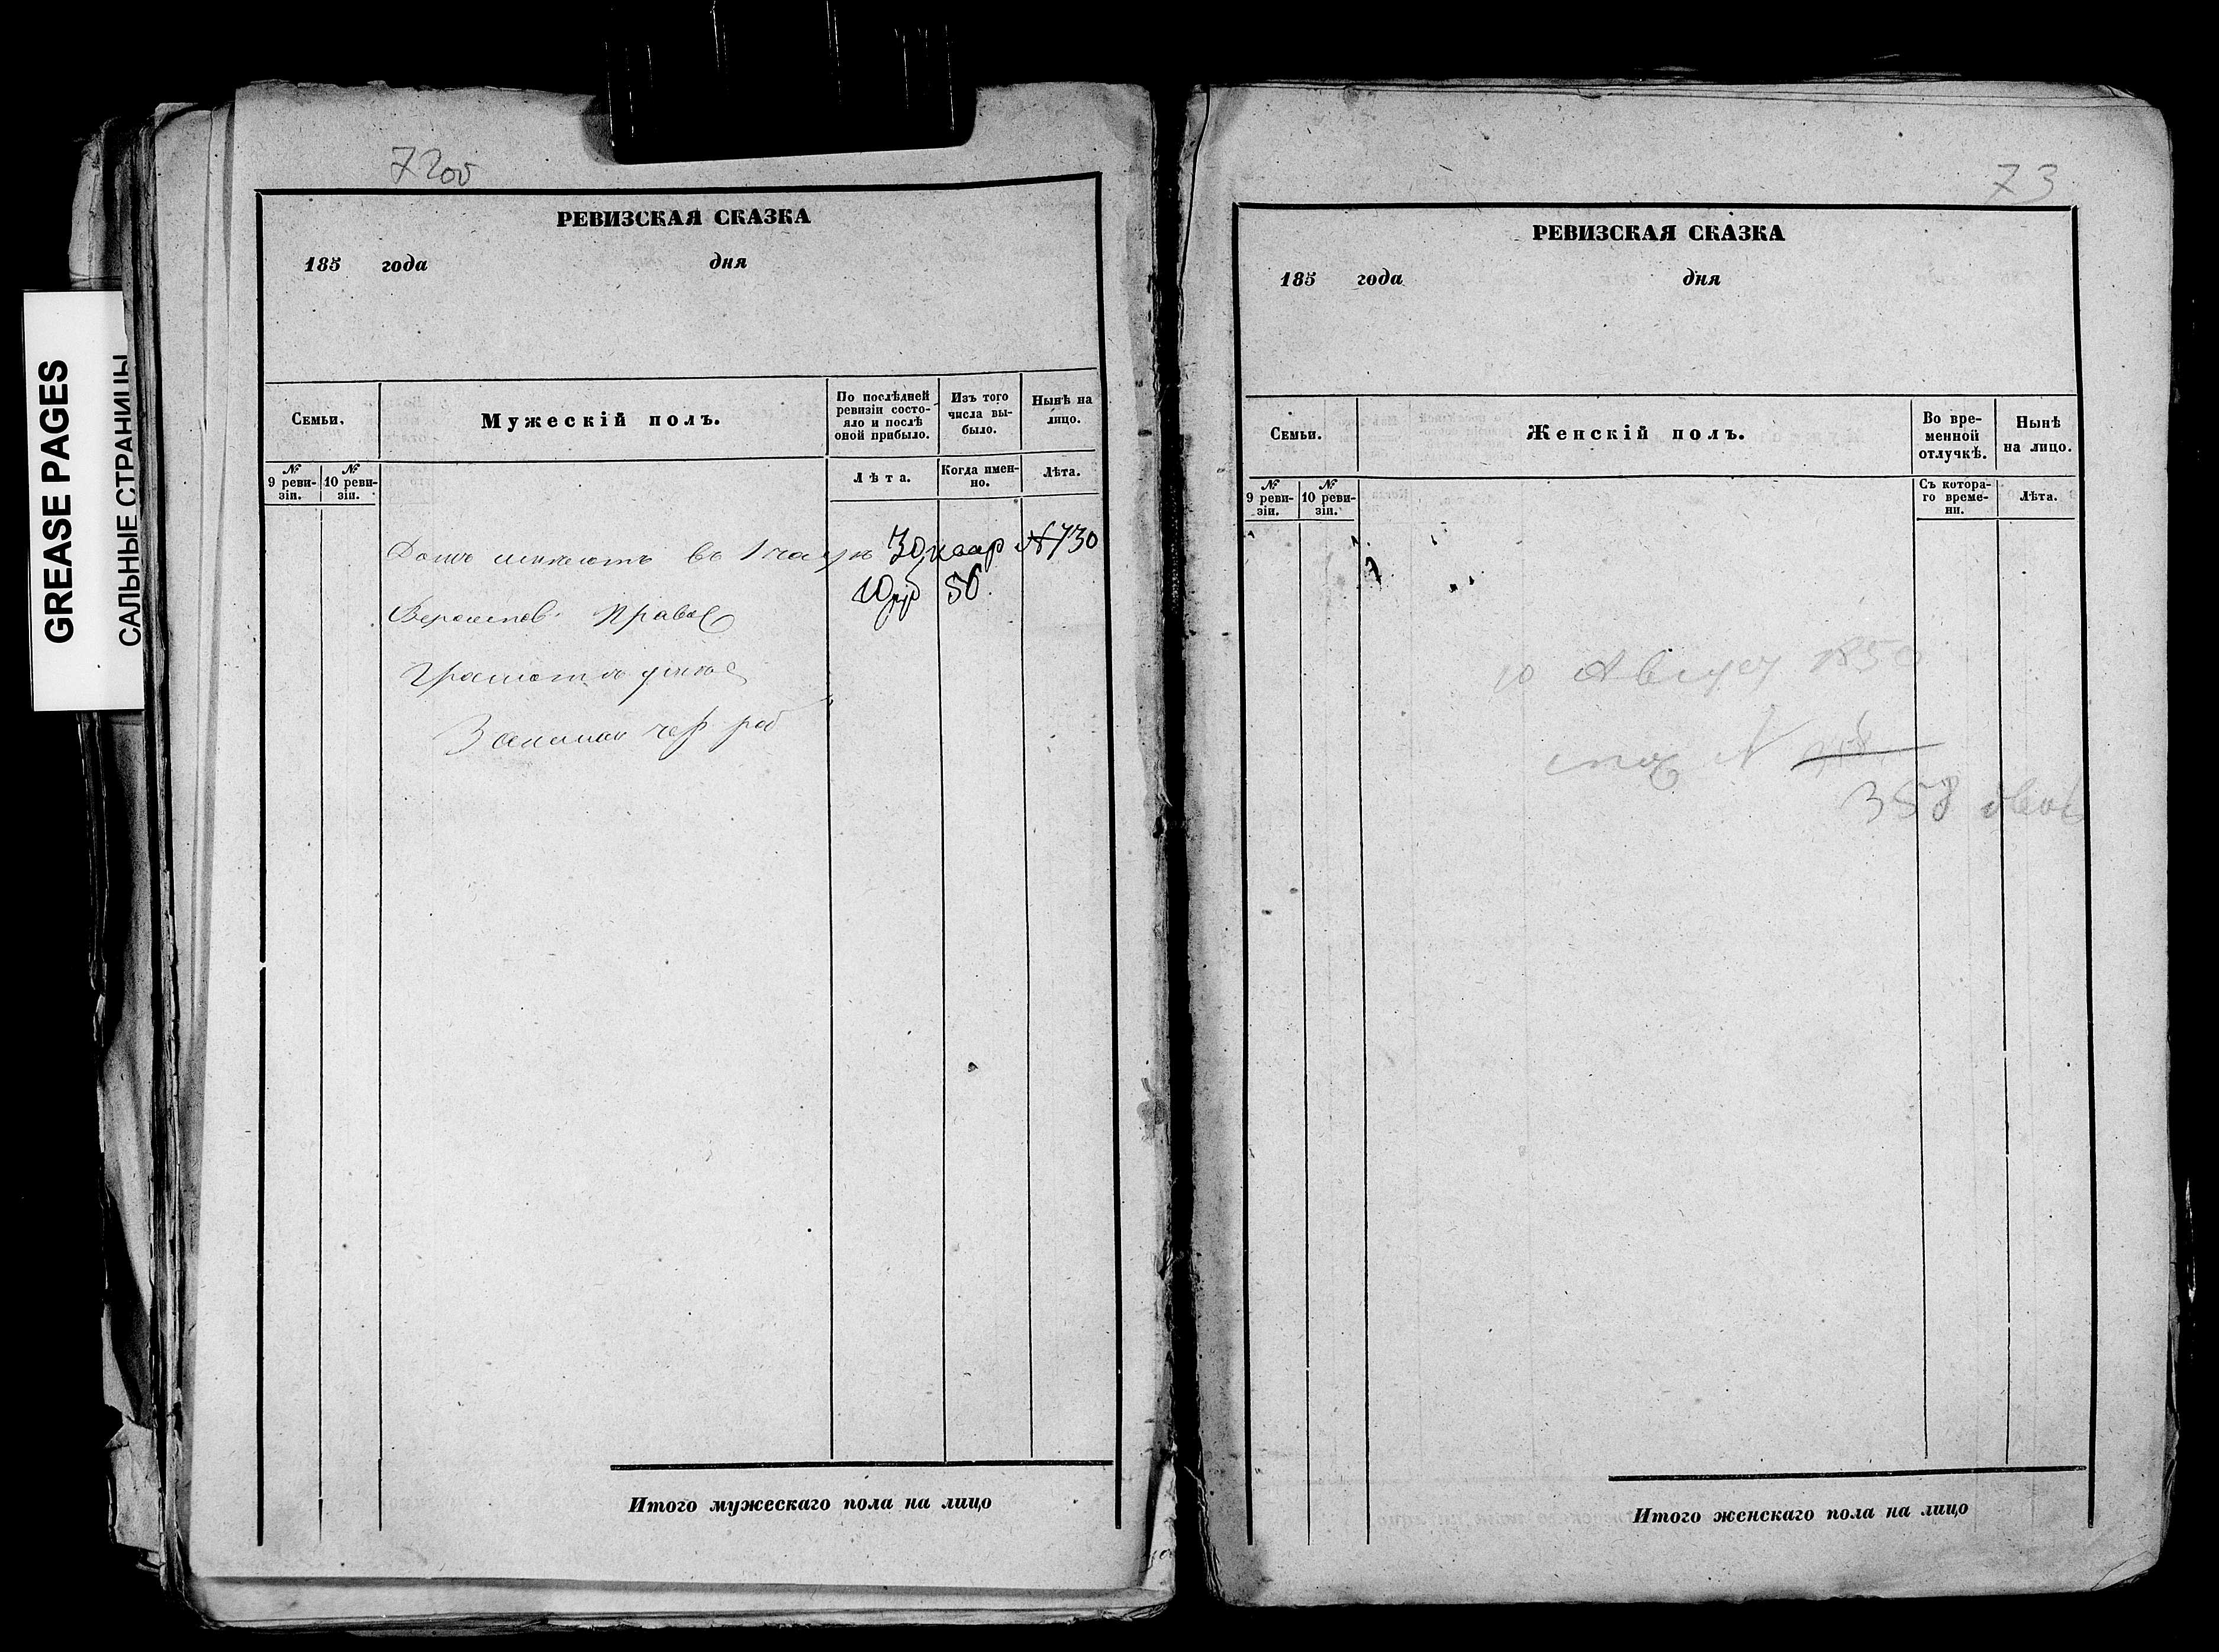 GREASE PAGES
САЛЬНЫЕ СТРАНИЦЫ
72об
РЕВИЗСКАЯ СКАЗКА
185 года дня
Семьи.
Мужескій полъ.
По послѣдней ревизіи состо-
яло и послѣ оной прибыло.
Изъ того числа вы-
было.
Нынѣ на лицо.
№ 9 реви-
зіи.
№ 10 реви-
зіи.
Лѣта.
Когда имен-
но.
Лѣта.
Домъ имѣютъ въ 1 части 30 №730
10 56
Правос
Грамотѣ
чер раб
Итого мужескаго пола на лицо
73
РЕВИЗСКАЯ СКАЗКА
185 года дня
Семьи.
Женскій полъ.
Во вре-
менной
отлучкѣ.
Нынѣ
на лицо.
№ 9 реви-
зіи.
№ 10 реви-
зіи.
Съ котора-
го време-
ни.
Лѣта.
10 Август 1850
N
358
Итого женскаго пола на лицо